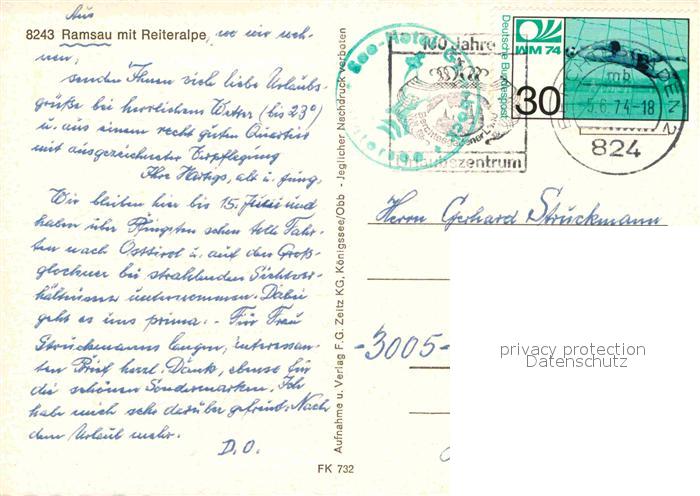 Aus
8243 Ramsau mit Reiteralpe, wo wir woh-
nen,
senden Ihnen viel liebe Urlaubs-
grüße bei herrlichem Wetter (bis 23°)
u. aus einem recht guten Quartier
mit ausgezeichneter Verpflegung
Ihre Hartigs, alt u. jung.
Wir bleiben hier bis 15. Juni und
haben über Pfingsten schon tolle Fahr-
ten nach Osttirol u. auf den Groß-
glockner bei strahlenden Sichtver-
hältnissen unternommen. Dabei
geht es uns prima. - Für Frau
Struckmanns langen, interessan-
ten Brief herzl. Dank, ebenso für
die schönen Sondermarken. Ich
habe mich sehr darüber gefreut. Nach
dem Urlaub mehr.
D.O.
Aufnahme u. Verlag F.G. Zeitz KG, Königssee/Obb - Jeglicher Nachdruck verboten
FK 732
See-Hotel
100 Jahre
Berchtesgadener Land
Urlaubszentrum
Deutsche Bundespost
WM 74
30
mb
-5.6.74-18
824
Herrn Gerhard Struckmann
-3005-
privacy protection
Datenschutz